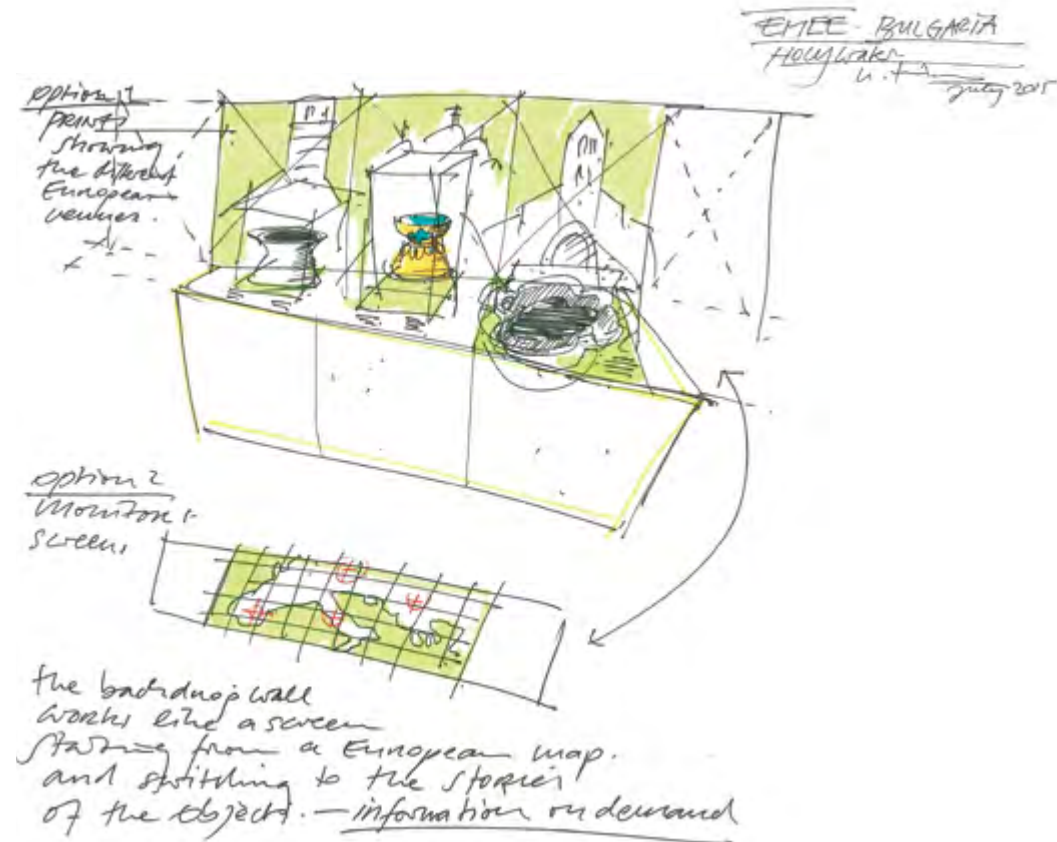 EMEE - BULGARIA
Holy water
July 2015
option 1
PRINTS
showing
the different
European
venues.
option 2
Monitors
screens
the backdrop wall
works like a screen
starting from a European map.
and switching to the stories
of the objects. — information on demand